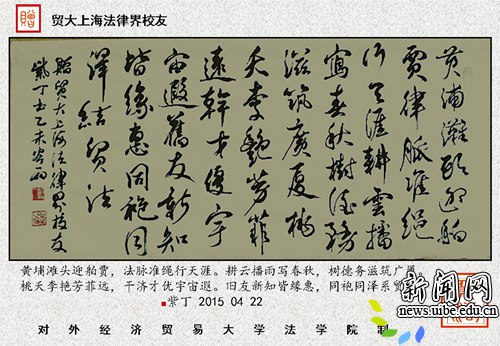 赠
贸大上海法律界校友
黄浦滩头迎舶
贾律脉准绳
行天涯耕雲播
寫春秋樹德務
滋筑廣厦桃
夭李艷芳菲
遠幹才優宇
宙遐舊友新知
皆缘惠同袍同
泽结贸法
贻贸大上海法律界校友
紫丁书乙未谷雨
黄埔滩头迎舶贾，法脉准绳行天涯。耕云播雨写春秋，树德务滋筑广
桃天李艳芳菲远，干济才优宇宙遐。旧友新知皆缘惠，同袍同泽系贸
紫丁 2015 04 22
对外经济贸易大学法学院制
新闻网
news.uibe.edu.cn